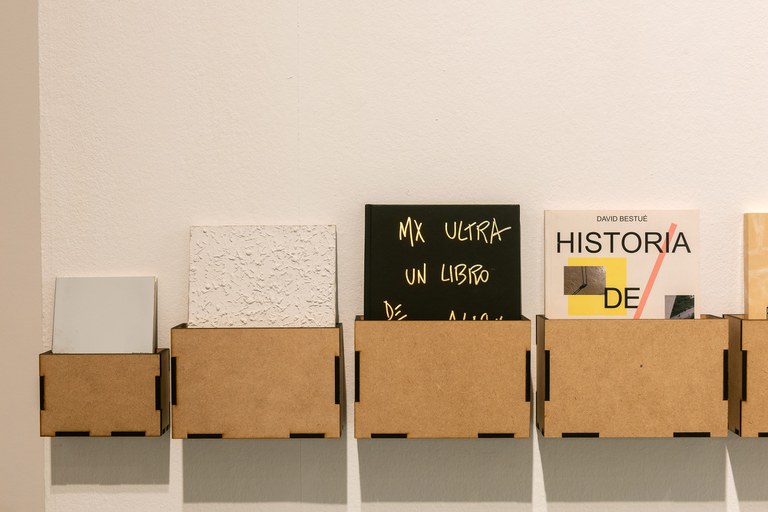 MX ULTRA
UN LIBRO
DE
DAVID BESTUÉ
HISTORIA
DE